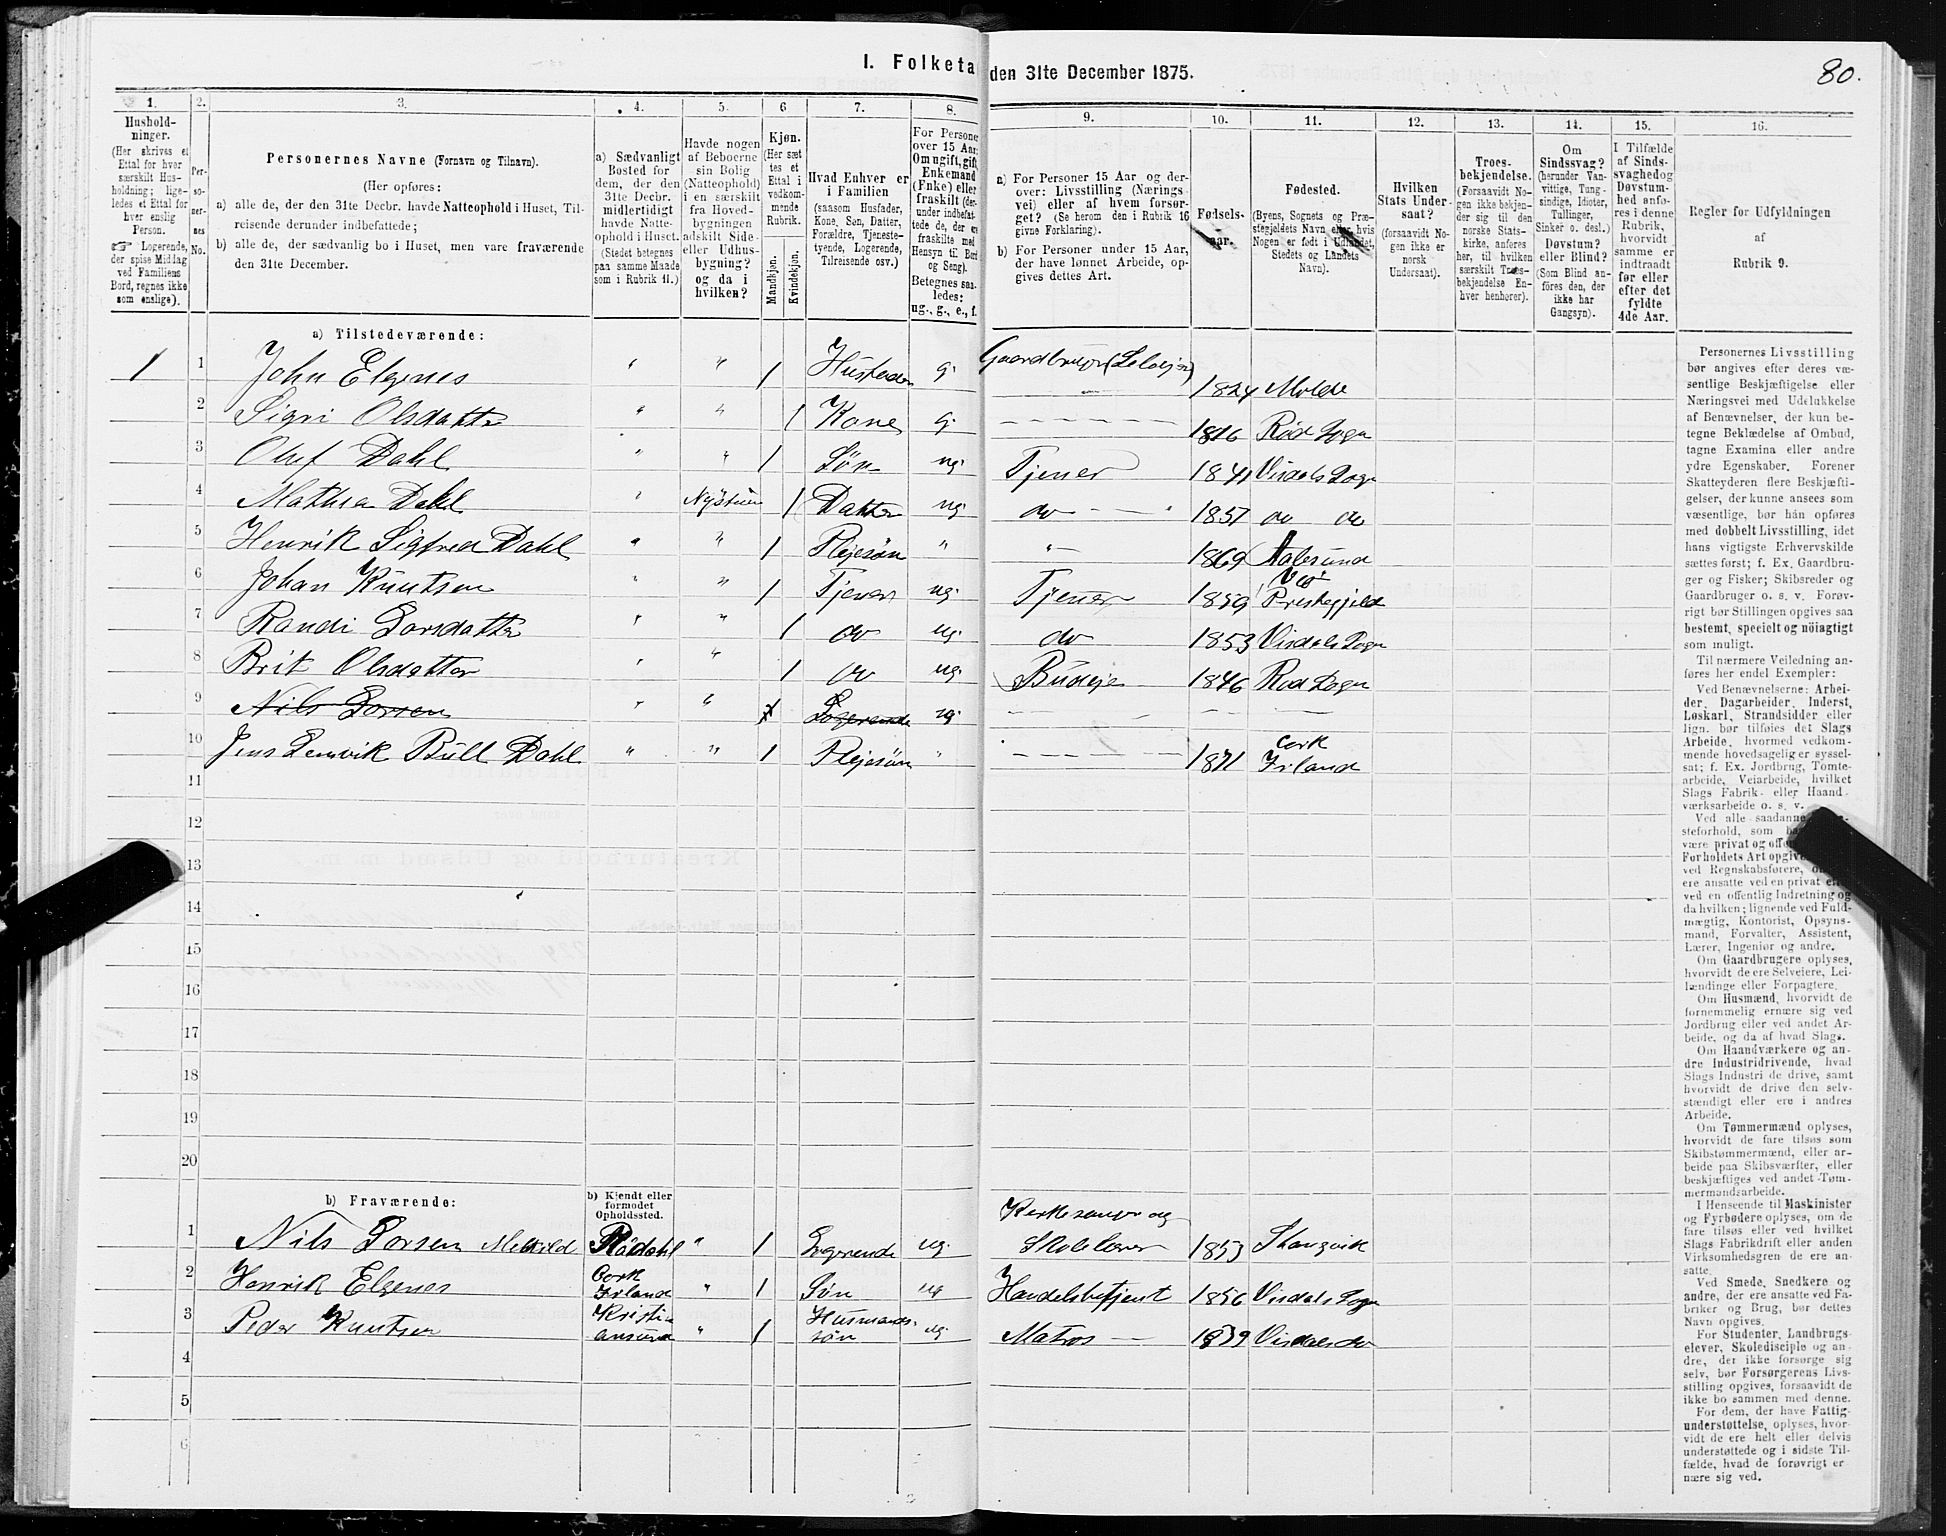 I. Folketa den 31te December 1875.
80.
1. 2. 3. 4. 5. 6 7. 8. 9. 10. 11. 12. 13. 14. 15. 16.
Hushold-
ninger.
(Her skrives et
Ettal for hver
særskilt Hus-
holdning; lige-
ledes et Ettal for
hver enslig
Person.
☞ Logerende,
der spise Middag
ved Familiens
Bord, regnes ikke
som enslige).
Per-
so-
ner-
nes
No.
Personernes Navne (Fornavn og Tilnavn).
(Her opføres:
a) alle de, der den 31te Decbr. havde Natteophold i Huset, Til-
reisende derunder indbefattede;
b) alle de, der sædvanlig bo i Huset, men vare fraværende
den 31te December.
a) Sædvanligt
Bosted for
dem, der den
31te Decbr.
midlertidigt
havde Natte-
ophold i Huset.
(Stedet betegnes
paa samme Maade
som i Rubrik 11.)
Havde nogen
af Beboerne
sin Bolig
(Natteophold)
i en særskilt
fra Hoved-
bygningen
adskilt Side-
eller Udhus-
bygning?
og da i
hvilken?
Kjøn.
(Her sæt
tes et
Ettal i
vedkom-
mende
Rubrik.
Mandkjøn.
Kvindekjøn.
Hvad Enhver er
i Familien
(saasom Husfader,
Kone, Søn, Datter,
Forældre, Tjeneste-
tyende, Logerende,
Tilreisende osv.)
For Persone
over 15 Aar:
Om ugift, gift,
Enkemand
(Enke) eller
fraskilt (der-
under indbefat-
tede de, der er
fraskilte med
Hensyn til Bord
og Seng).
Betegnes saa-
ledes:
ug., g., e., f.
a) For Personer 15 Aar og der-
over: Livsstilling (Nærings-
vei) eller af hvem forsør-
get? (Se herom den i Rubrik 16
givne Forklaring).
b) For Personer under 15 Aar,
der have lønnet Arbeide, op-
gives dettes Art.
Fødsels-
aar.
Fødested.
(Byens, Sognets og Præ-
stegjeldets Navn eller, hvis
Nogen er født i Udlandet,
Stedets og Landets
Navn).
Hvilken
Stats Under-
saat?
(forsaavidt No-
gen ikke er
norsk
Undersaat).
Troes-
bekjendelse.
(Forsaavidt No-
gen ikke bekjen-
der sig til den
norske Stats-
kirke, anføres
her, til hvilken
særskilt Troes-
bekjendelse En-
hver henhører).
Om
Sindssvag?
(herunder Van-
vittige, Tung-
sindige, Idioter,
Tullinger,
Sinker o. desl.)
Døvstum?
eller Blind?
(Som Blind an-
føres den, der
ikke har
Gangsyn).
I Tilfælde
af Sinds-
svaghed og
Døvstum-
hed anfø-
res i denne
Rubrik,
hvorvidt
samme er
indtraadt
før eller
efter det
fyldte
4de Aar.
Regler for Udfyldningen
af
Rubrik 9.
a) Tilstedeværende:
1 1 John Elgenes " " 1 Husfader g. Gaardbruger (Selvejer) 1824 Molde
2 Sigri Olsdatter " " 1 Kone g. — 1816 Rød Sogn
3 Oluf Dahl " " 1 Søn ug. Tjener 1841 Visdals Sogn
4 Mathea Dahl " Nystuen 1 Datter ug. do 1857 do do
5 Henrik Sigfred Dahl " " 1 Plejesøn " " 1869 Aalesund
6 Johan Knutsen " " 1 Tjener ug. Tjener 1859 Veø Prestegjeld
7 Randi Larsdatter " " 1 do ug. do 1853 Visdals Sogn
8 Brit Olsdatter " " 1 do ug. Budeje 1846 Rød Sogn
9 Nils Larsen " " Logerende ug. —
10 Jens Lemvik Bull Dahl " " 1 Plejesøn " — 1871 Cork Irland
11
12
13
14
15
16
17
18
19
20
b) Fraværende:
b) Kjendt eller
formodet
Opholdssted.
1 Nils Larsen Melkild Rødahl " 1 Logerende ug. Kirkesanger og Skolelærer 1853 Stangvik
2 Henrik Elgenes Cork Irland " 1 Søn ug Handelsbetjent 1856 Visdals Sogn
3 Peder Knutsen Kristiansund " 1 Husmandssøn ug. Matros — 1839 Visdals do
4
5
6
Personernes Livsstilling
bør angives efter deres væ-
sentlige Beskjæftigelse eller
Næringsvei med Udelukkelse
af Benævnelser, der kun be-
tegne Beklædelse af Ombud,
tagne Examina eller andre
ydre Egenskaber. Forener
Skatteyderen flere Beskjæfti-
gelser, der kunne ansees som
væsentlige, bør han opføres
med dobbelt Livsstilling, idet
hans vigtigste Erhvervskilde
sættes først; f. Ex. Gaardbru-
ger og Fisker; Skibsreder og
Gaardbruger o. s. v. Forøv-
rigt bør Stillingen opgives saa
bestemt, specielt og nöiagtigt
som muligt.
Til nærmere Veiledning an-
føres her endel Exempler:
Ved Benævnelserne: Arbei-
der, Dagarbeider, Inderst,
Løskarl, Strandsidder eller
lign. bør tilføies det Slags
Arbeide, hvormed vedkom-
mende hovedsagelig er syssel-
sat; f. Ex. Jordbrug, Tømte-
arbeide, Veiarbeide, hvilket
Slags Fabrik- eller Haand-
værksarbeide o. s. v.
Ved alle saadanne
steforhold, som
være privat og
Forholdets Art
ved Regnskabsførere,
ere ansatte ved en privat
ved en offentlig Indretning og
da hvilken; lignende ved Fuld-
mægtig, Kontorist, Opsyns-
mand, Forvalter, Assistent,
Lærer, Ingeniør og andre.
Om Gaardbrugere oplyses,
hvorvidt de ere Selveiere, Lei-
lændinge eller Forpagtere.
Om Husmænd, hvorvidt de
fornemmelig ernære sig ved
Jordbrug eller ved andet Ar-
beide, og da af hvad Slags.
Om Haandværkere og an-
dre Industridrivende, hvad
Slags Industri de drive, samt
hvorvidt de drive den selv-
stændigt eller ere i andres
Arbeide.
Om Tømmermænd oplyses,
hvorvidt de fare tilsøs som
Skibstømmermænd, eller ar-
beide paa Skibsværfter, eller
beskjæftiges ved andet Tøm-
mermandsarbeide.
I Henseende til Maskinister
og Fyrbødere oplyses, om de
fare tilsøs eller ved hvilket
Slags Fabrikdrift eller anden
Virksomhedsgren de ere an-
satte.
Ved Smede, Snedkere og
andre, der ere ansatte ved Fa-
briker og Brug, bør dettes
Navn opgives.
For Studenter, Landbrugs-
elever, Skoledisciple og an-
dre, der ikke forsørge sig
selv, bør Forsørgerens Livs-
stilling opgives, forsaavidt de
ikke bo sammen med denne.
For dem, der have Fattig-
understøttelse, oplyses, hvor-
vidt de ere helt eller delvis
understøttede og i sidste Til-
fælde, hvad de forøvrigt er-
nære sig ved.